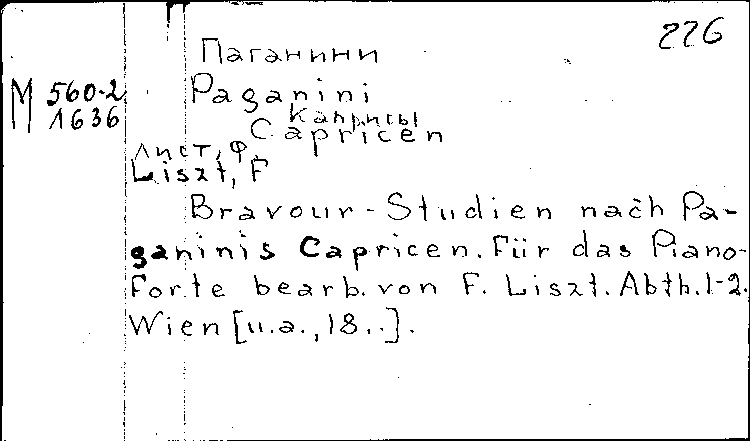 226
Паганини
М 560-2 Paganini
1636 Каприсы
Capricen
Лист, Ф.
Liszt, F
Bravour-Studien nach Pa-
ganinis Capricen. Für das Piano-
forte bearb. von F. Liszt. Abth. 1-2.
Wien [u.a., 18..].